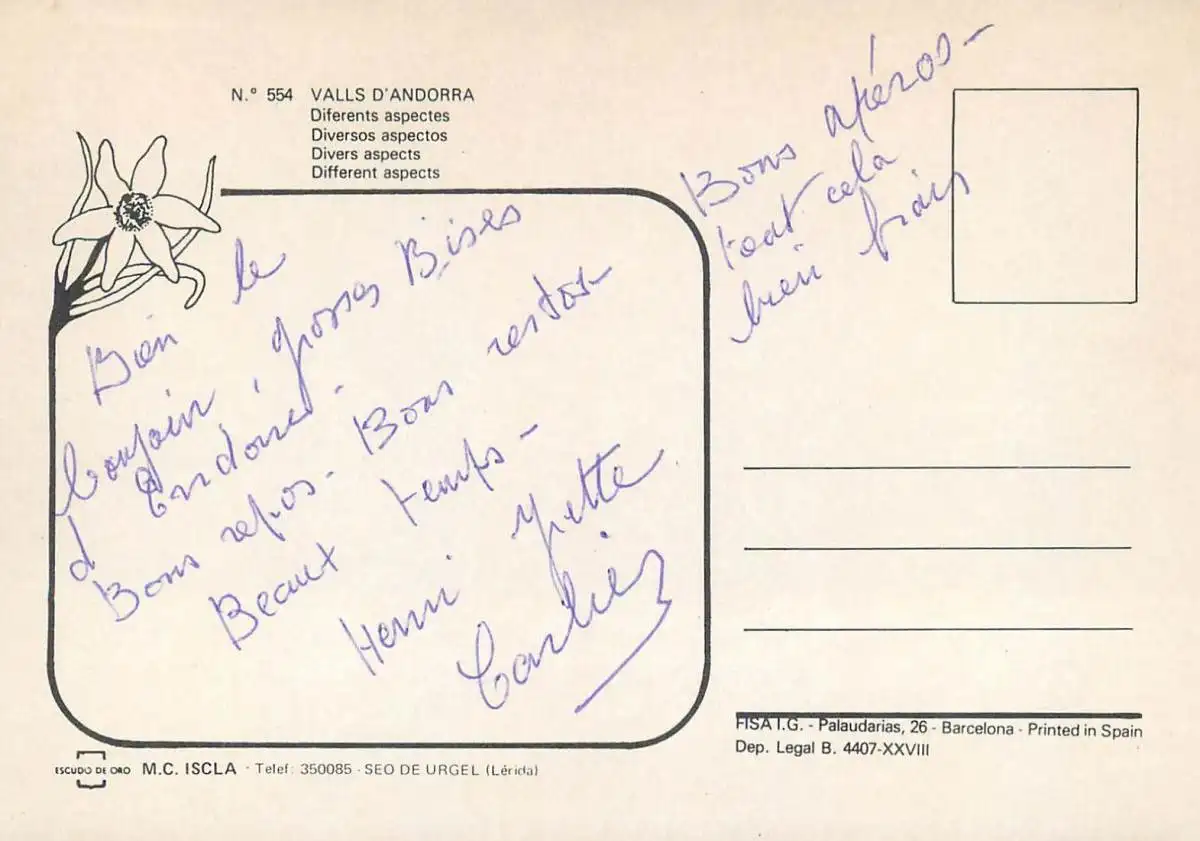 N.º 554 VALLS D'ANDORRA
Diferents aspectes
Diversos aspectos
Divers aspects
Different aspects
Bien le
bonjoin grosses Bises
d'Endorre.
Bons repos. Bons restos
Beaux temps -
Henri Yvette
Bons apéros -
tout cela
bien frais
FISA I.G. - Palaudarias, 26 - Barcelona - Printed in Spain
Dep. Legal B. 4407-XXVIII
ESCUDO DE ORO M.C. ISCLA · Telef: 350085 - SEO DE URGEL (Lérida)